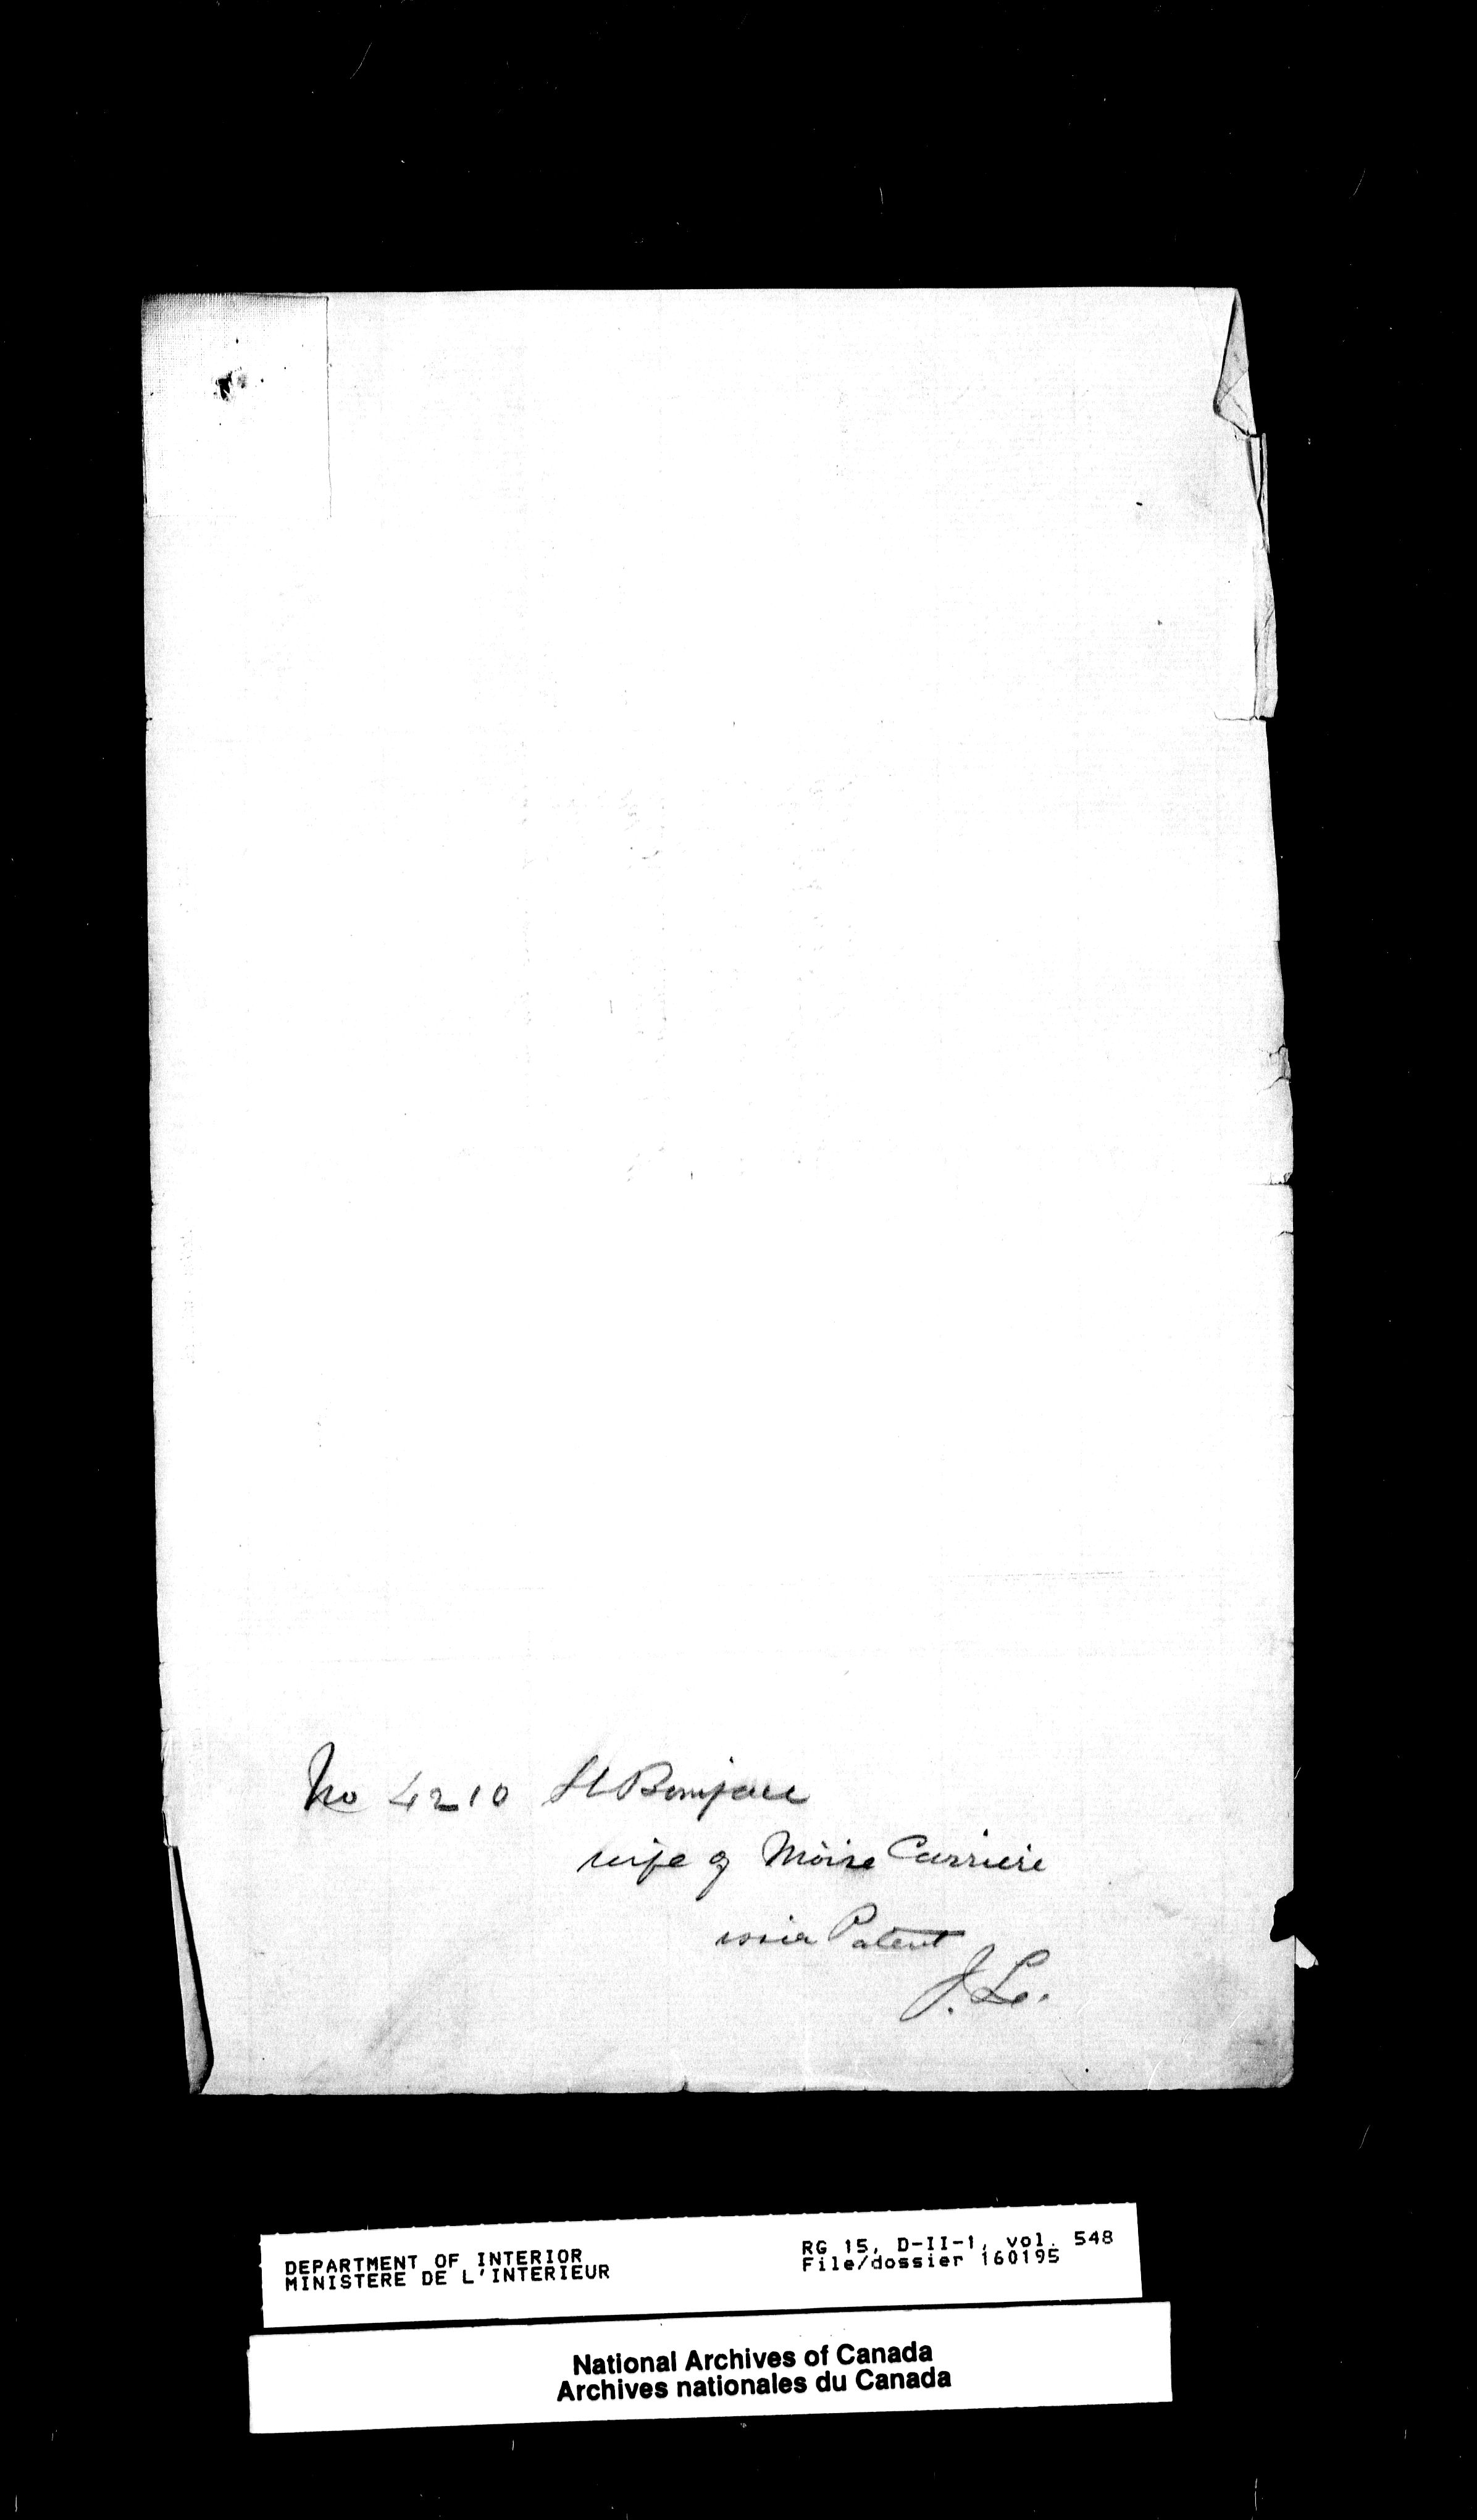 No 4210 St Boniface
wife of Moise Carriere
issue Patent
J. Le.
DEPARTMENT OF INTERIOR
MINISTERE DE L'INTERIEUR
RG 15, D-II-1, vol. 548
File/dossier 160195
National Archives of Canada
Archives nationales du Canada